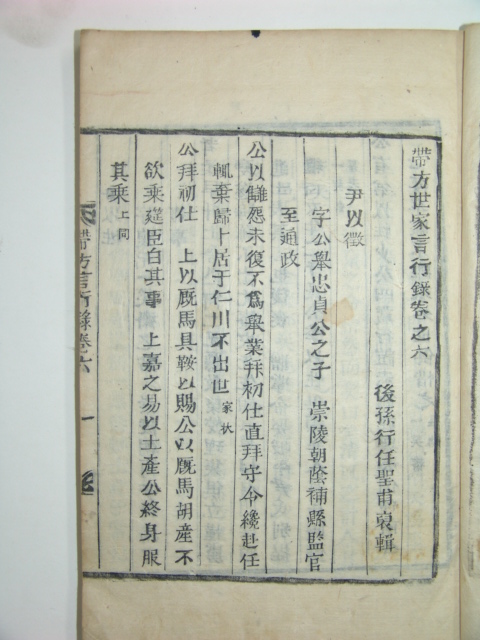 帶方世家言行錄卷之六
後孫行任聖甫裒輯
尹以徵
字公舉忠貞公之子　崇陵朝蔭補縣監官
至通政
公以讎怨未復不爲舉業拜初仕直拜守令纔赴任
輒棄歸卜居于仁川不出世家狀
公拜初仕　上以厩馬具鞍以賜公以厩馬胡產不
欲乘筵臣白其事　上嘉之易以土產公終身服
其乘上同
帶方言行錄卷六
一